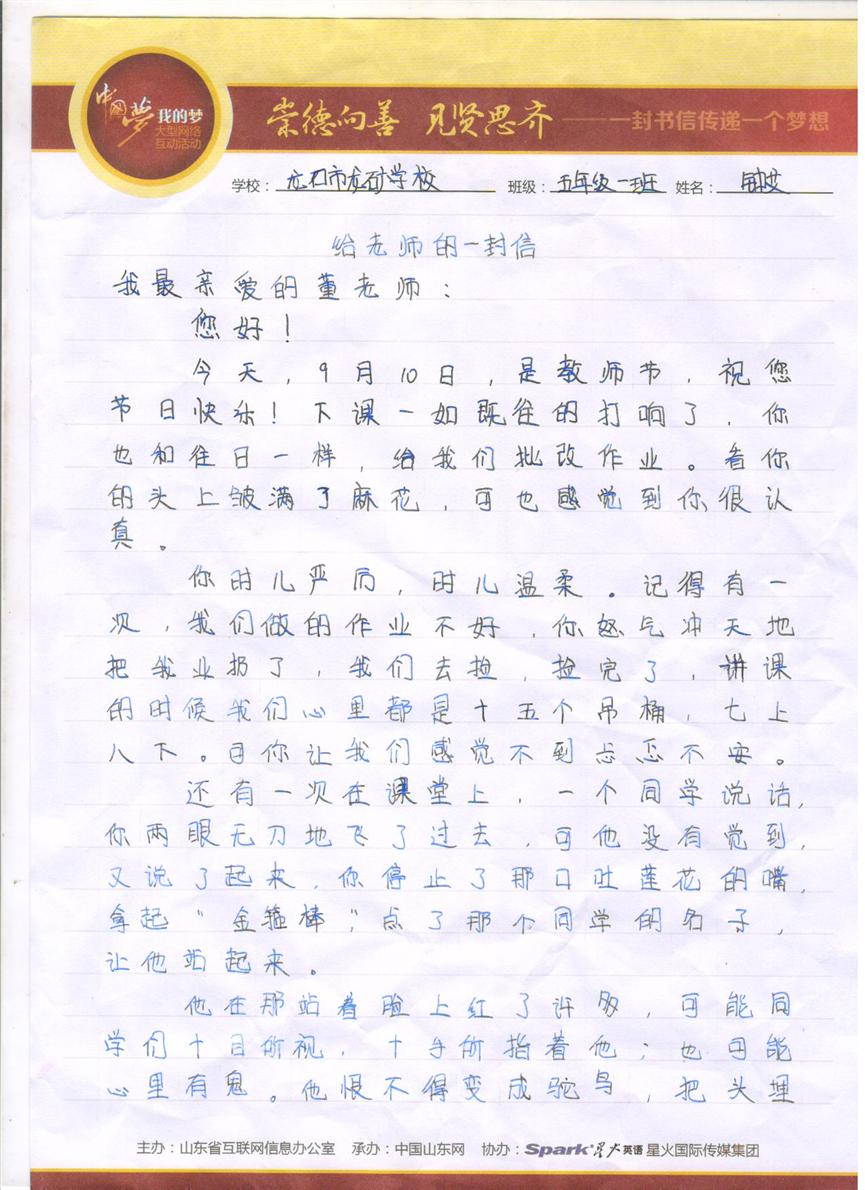 中国梦 我的梦
大型网络
互动活动
崇德向善 见贤思齐 ——一封书信传递一个梦想
学校：龙口市龙矿学校 班级：五年级一班 姓名：
给老师的一封信
我最亲爱的董老师：
您好！
今天，9月10日，是教师节，祝您
节日快乐！下课一如既往的打响了，你
也和往日一样，给我们批改作业。看你
的头上皱满了麻花，可也感觉到你很认
真。
你时儿严厉，时儿温柔。记得有一
次，我们做的作业不好，你怒气冲天地
把我业扔了，我们去捡，捡完了，讲课
的时候我们心里都是十五个吊桶，七上
八下。可你让我们感觉不到忐忑不安。
还有一次在课堂上，一个同学说话，
你两眼无刀地飞了过去，可他没有觉到，
又说了起来，你停止了那口吐莲花的嘴，
拿起“金箍棒”，点了那个同学的名子，
让他站起来。
他在那站着脸上红了许多，可能同
学们十目所视，十手所指着他；也可能
心里有鬼。他恨不得变成驼鸟，把头埋
主办：山东省互联网信息办公室 承办：中国山东网 协办：Spark 星火英语 星火国际传媒集团